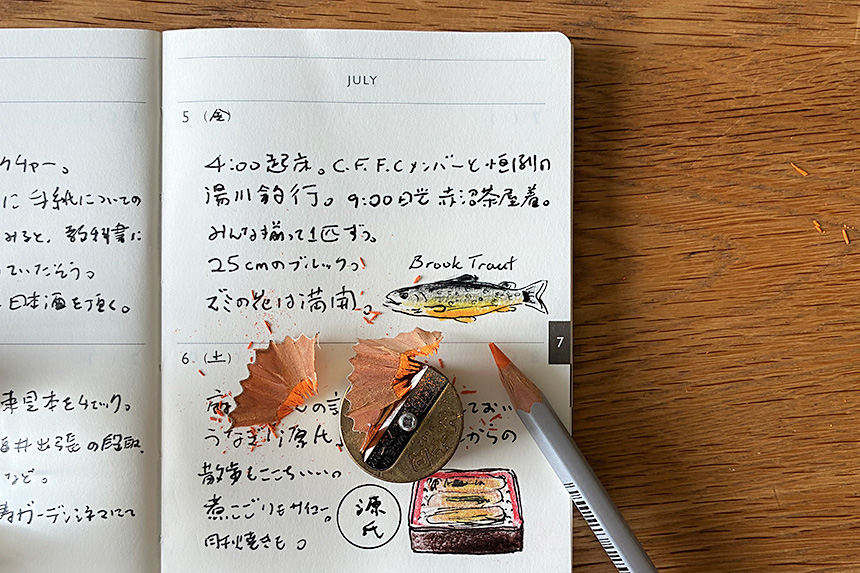 クチャー。
に 手紙についての
みると、教科書に
ていたそう。
日本酒を頂く。
東里本をチェック。
出張の段取
など。
ガーデンシネマにて
JULY
5 (金)
4:00起床。C.F.F.Cメンバーと恒例の
湯川釣行。9:00日光赤沼茶屋着。
みんな揃って1匹ずつ。
25cmのブルック。
Brook Trout
ズミの花は満開。
7
6 (土)
の
うなぎ 源氏 からの
散歩もここちいい。
煮こごりもサイコー。
源氏